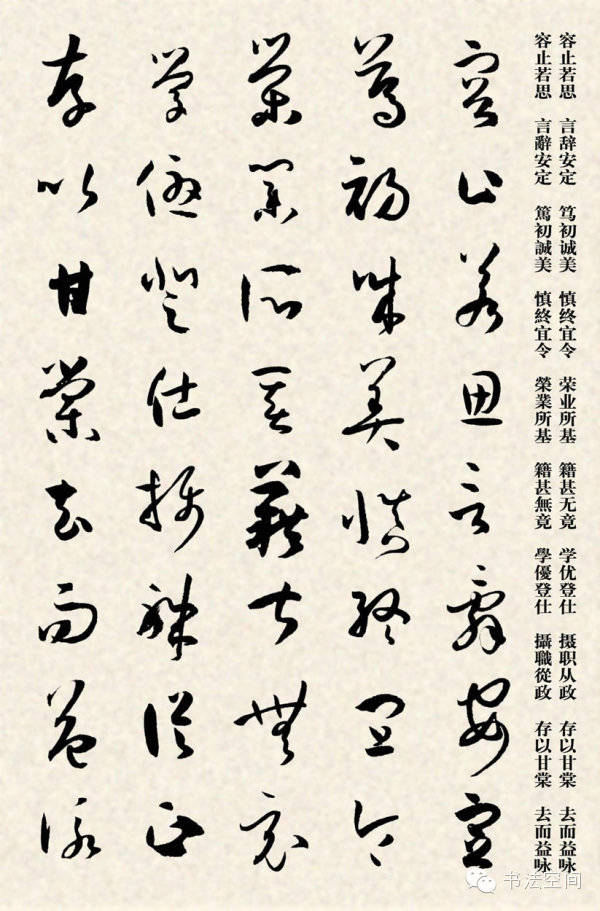 容止若思 言辞安定 笃初诚美 慎终宜令 荣业所基 籍甚无竟 学优登仕 摄职从政 存以甘棠 去而益咏
容止若思 言辭安定 篤初誠美 慎終宜令 榮業所基 籍甚無竟 學優登仕 攝職從政 存以甘棠 去而益咏
容止若思言辭安定
篤初誠美慎終宜令
榮業所基籍甚無竟
學優登仕攝職從政
存以甘棠去而益詠
书法空间